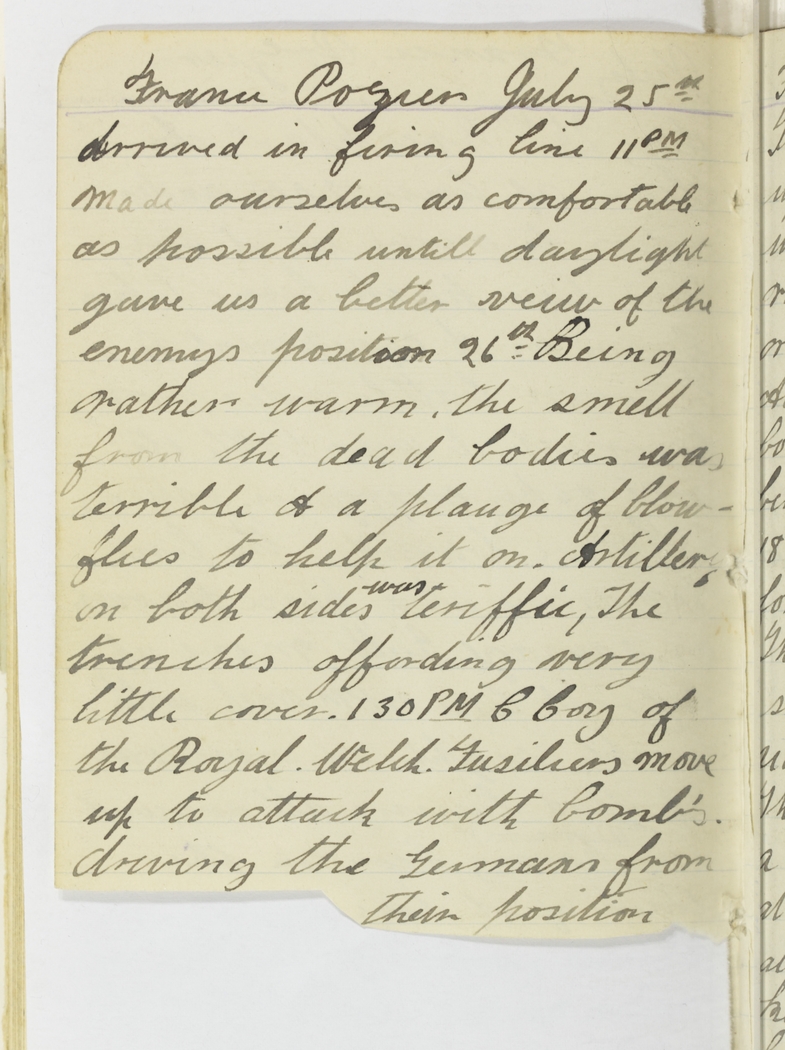 France Poziers July 25th
Arrived in firing line 11PM
made ourselves as comfortable
as possible untill daylight
gave us a better veiw of the
enemys position 26th Being
rather warm, the smell
from the dead bodies was
terrible & a plauge of blow-
flies to help it on. Artillery
on both sides was teriffic, The
trenches affording very
little cover. 130PM C Coy of
the Royal. Welch. Fusiliers move
up to attack with bomb's.
driving the Germans from
their position